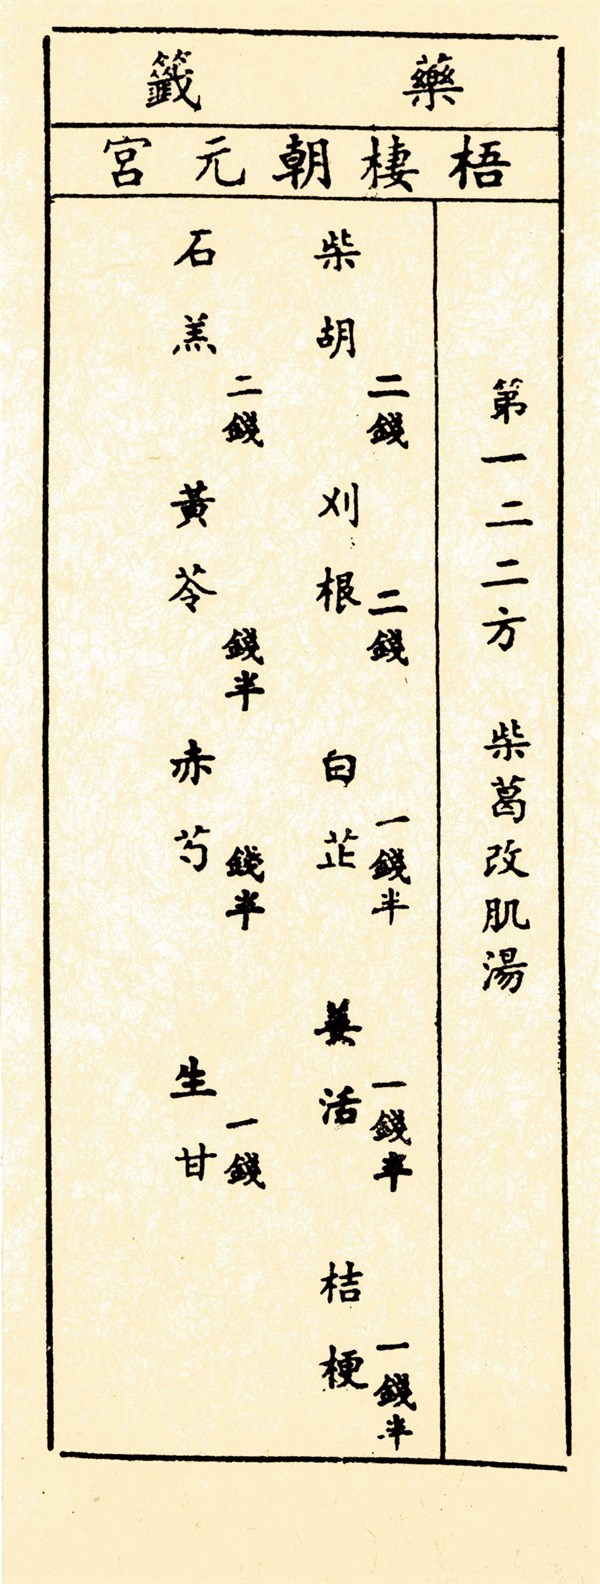 藥籤
梧棲朝元宮
第一二二方 柴葛改肌湯
柴胡 二錢 刈根 二錢 白芷 一錢半 羗活 一錢半 桔梗 一錢半
石羔 二錢 黃苓 錢半 赤芍 錢半 生甘 一錢